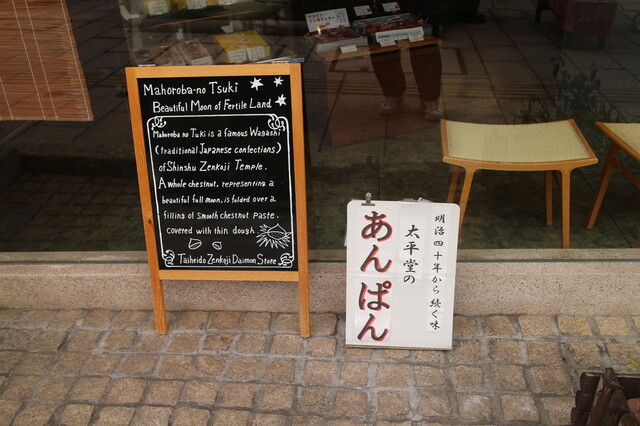 Mahoroba-no Tsuki
Beautiful Moon of Fertile Land
Mahoroba no Tuki is a famous Wagashi
(traditional Japanese confections)
of Shinshu Zenkoji Temple.
A whole chestnut, representing a
beautiful full moon, is folded over a
filling of smooth chestnut paste,
covered with thin dough
Taiheido Zenkoji Daimon Store
明治四十年から続く味
太平堂の
あんぱん